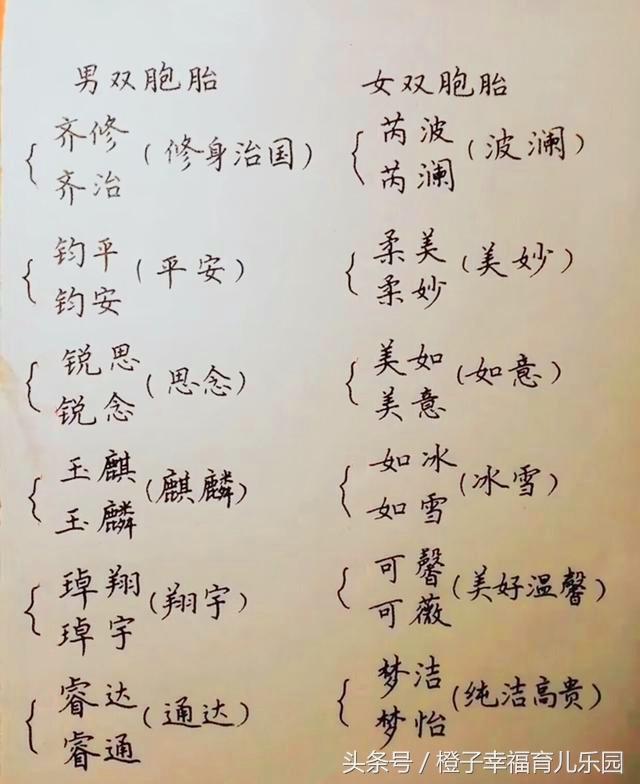 男双胞胎
齐修
齐治
(修身治国)
钧平
钧安
(平安)
锐思
锐念
(思念)
玉麒
玉麟
(麒麟)
琸翔
琸宇
(翔宇)
睿达
睿通
(通达)
女双胞胎
芮波
芮澜
(波澜)
柔美
柔妙
(美妙)
美如
美意
(如意)
如冰
如雪
(冰雪)
可馨
可薇
(美好温馨)
梦洁
梦怡
(纯洁高贵)
头条号/橙子幸福育儿乐园